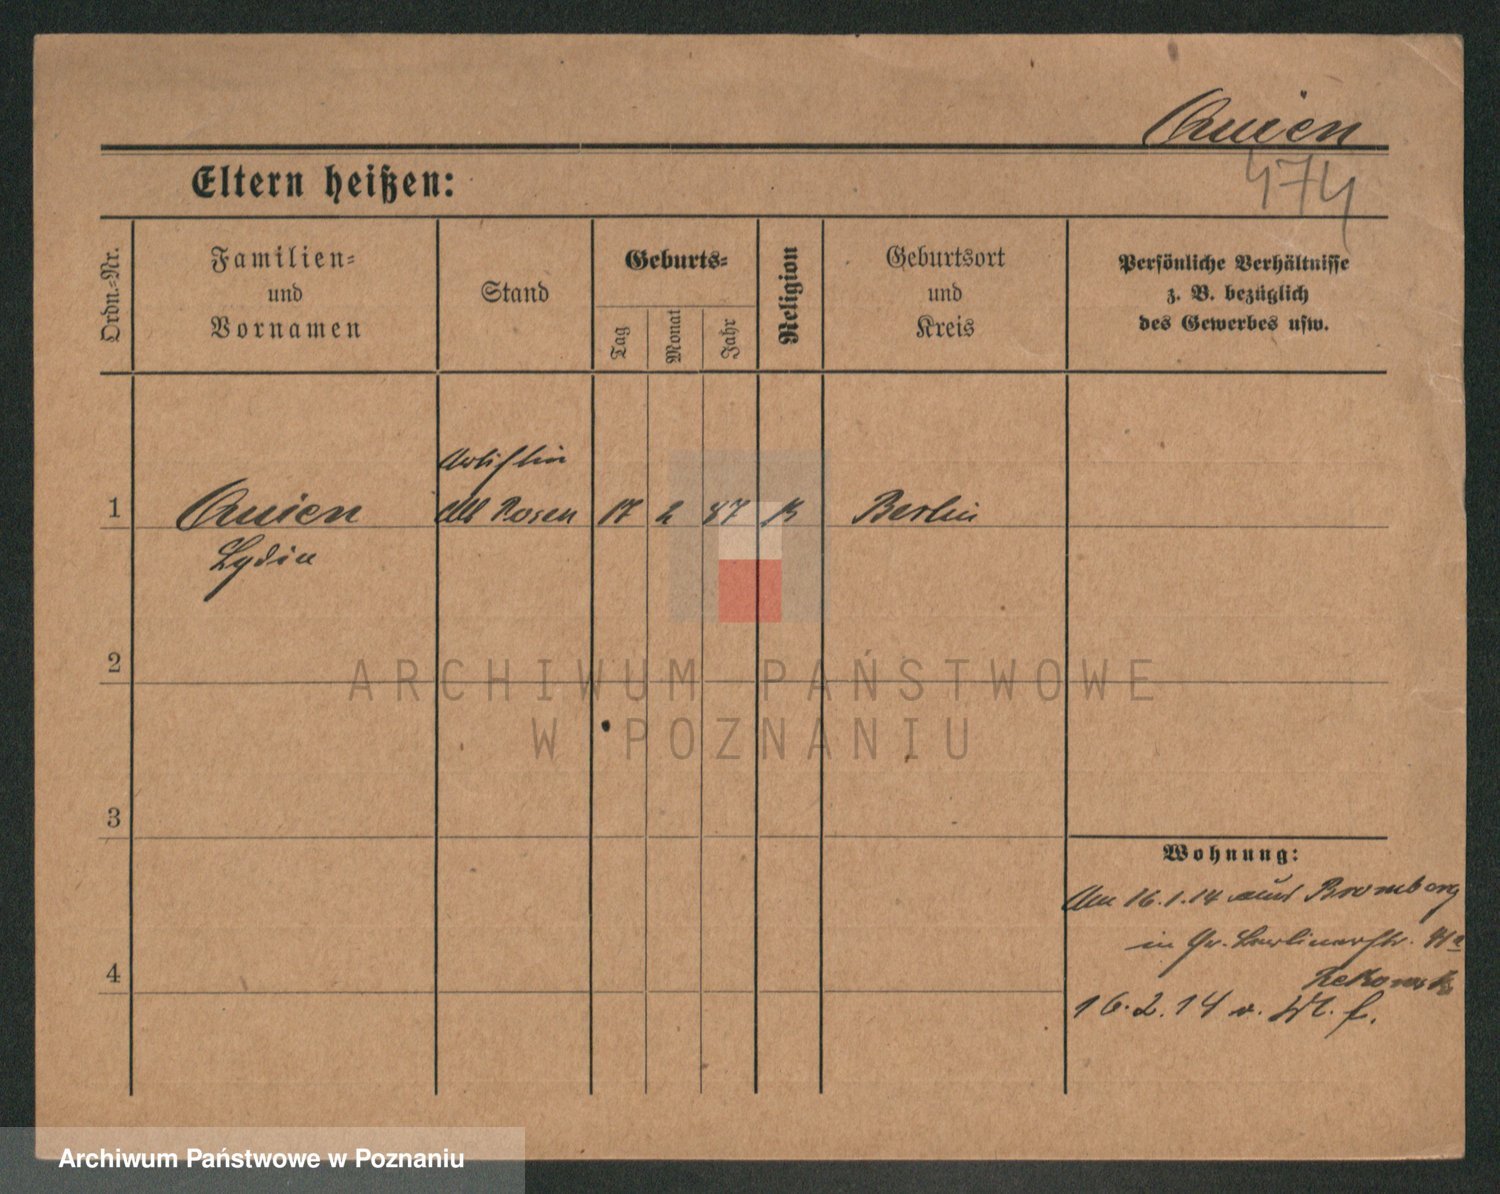 474
Eltern heißen:
Ordn.=Nr.
Familien=
und
Vornamen
Stand
Geburts=
Tag
Monat
Jahr
Religion
Geburtsort
und
Kreis
Persönliche Verhältnisse
z. B. bezüglich
des Gewerbes usw.
Artistin
1
Rosen 17 2 87 K Berlin
Lydia
2
3
4
Wohnung:
Am 16.1.14 aus Bromberg
in Gr. Berlinerstr.
16.2.14 v.
ARCHIWUM PAŃSTWOWE
W POZNANIU
Archiwum Państwowe w Poznaniu